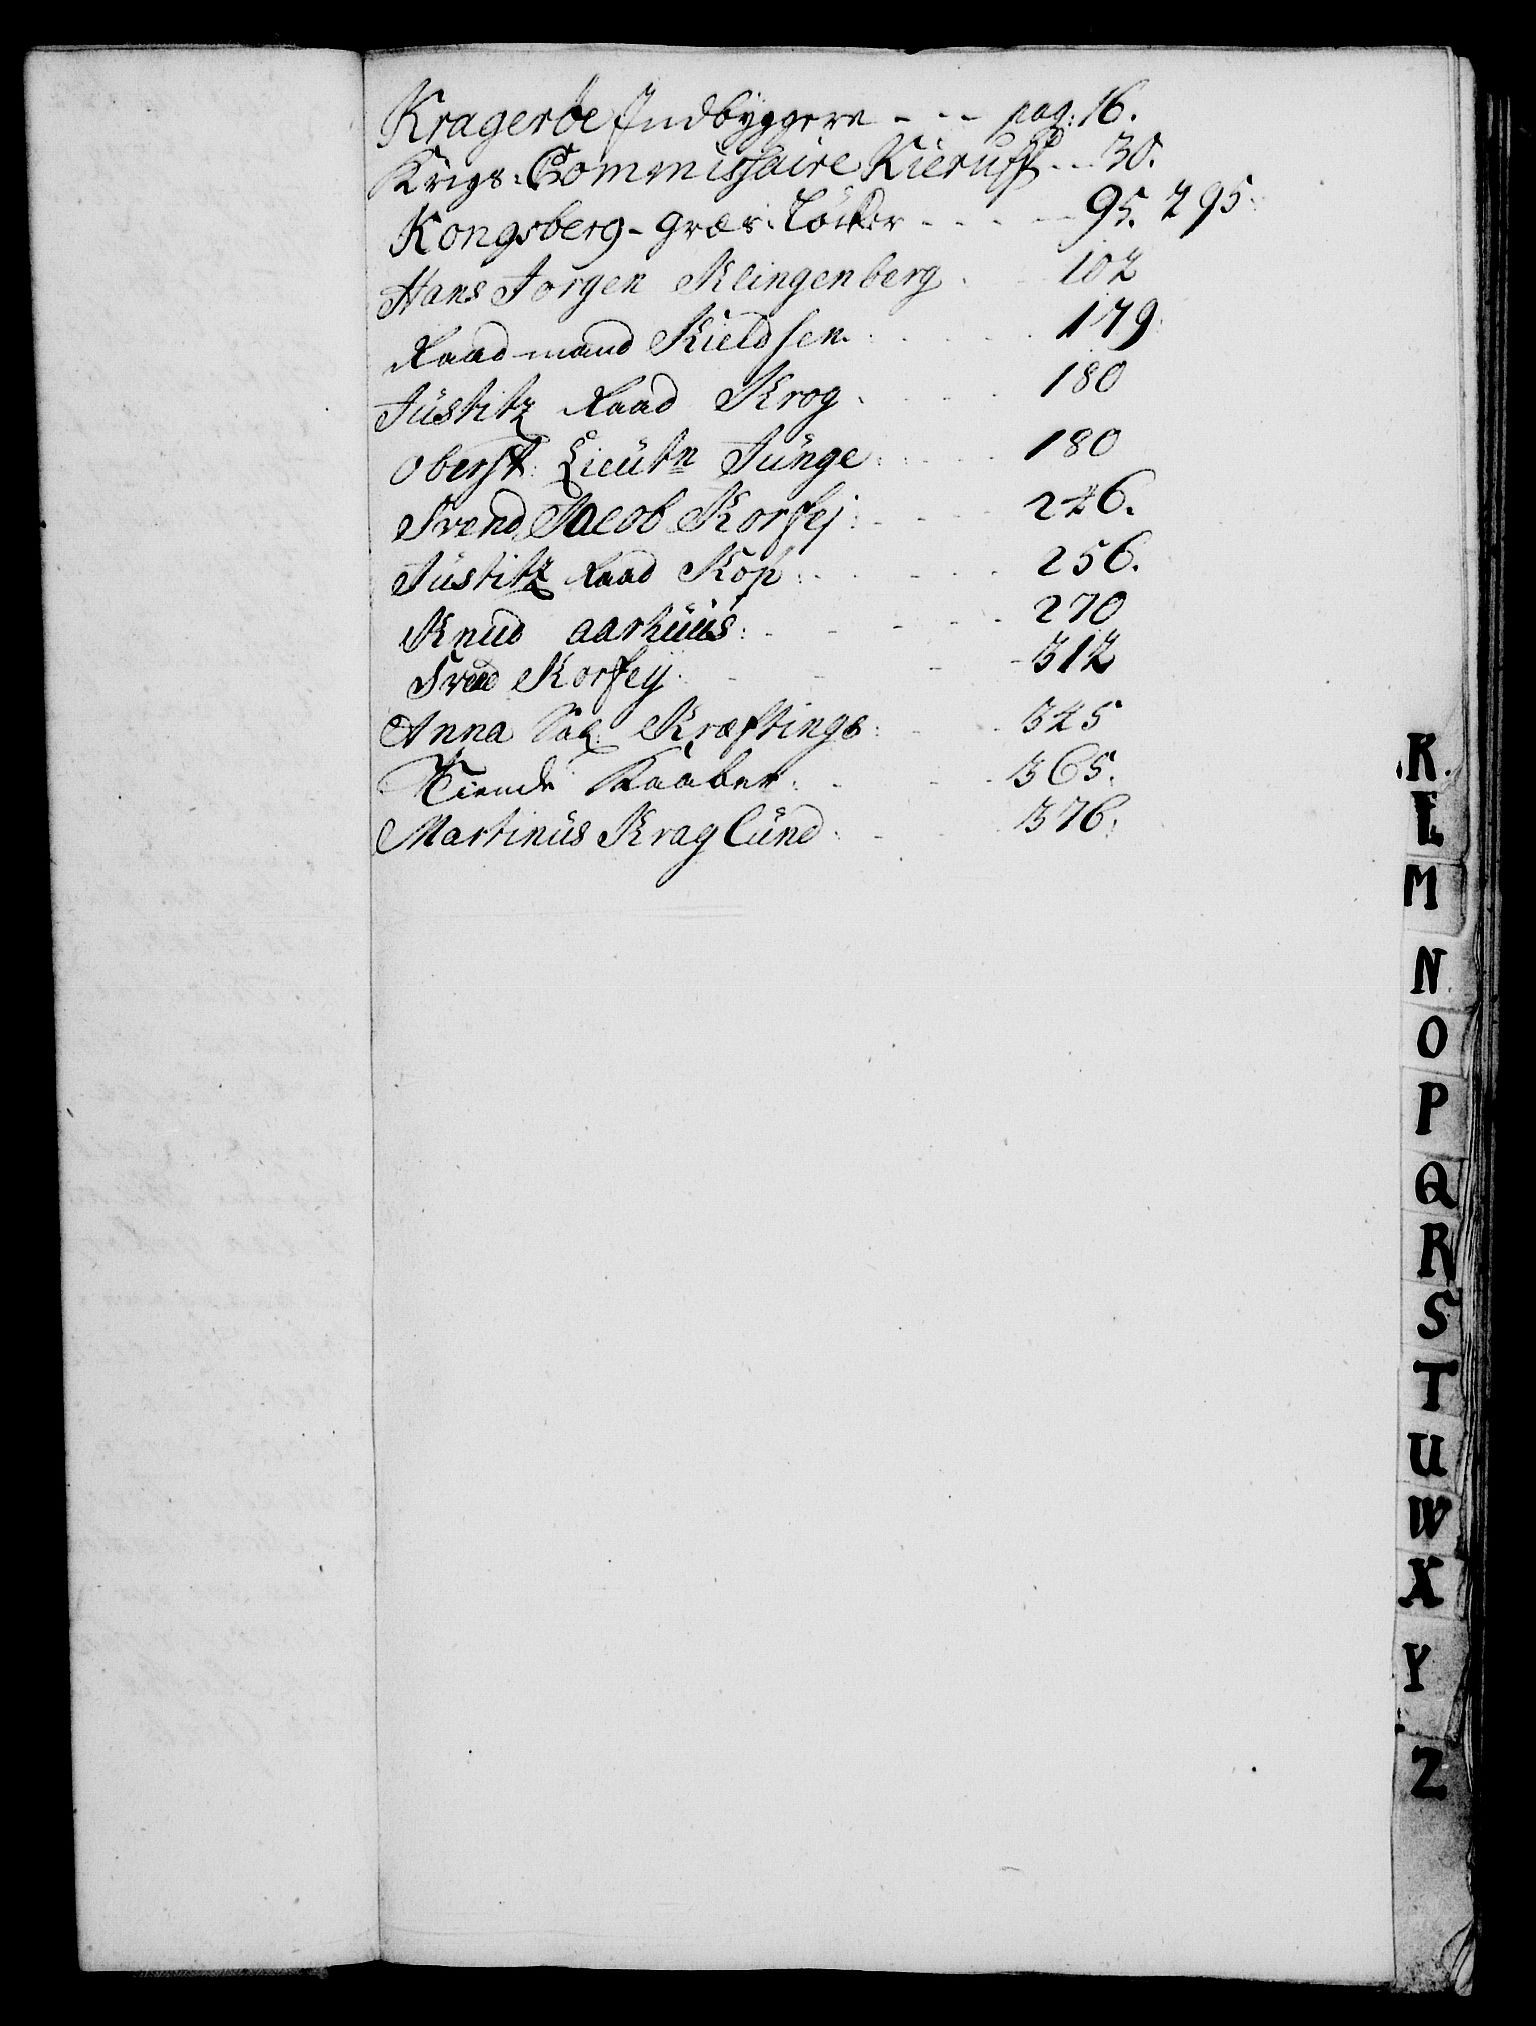 Krageröe Indbyggere - - - pag: 16.
Krigs: Commissaire Kierulf - - 30.
Kongsberg - græs: Löcker - - - 95. 295.
Hans Jorgen Klingenberg . 102
Raadmand Kieldsen . . . . 179.
Jüstitz Raad Krog . . . . 180
Oberst: Lieütn Jünge : . . . 180
Svend Jacob Korfej : - - - 246.
Jüstitz Raad Kop : . - - . 256.
Knud aarhüüs : - - - . . 270
Svend Korfey : - - - 312
Anna Sal: Kræftings : . . 345
Tiende Kaaber : - - . 365.
Martinüs Krag Lünd : - - 376.
K.
L
M
N.
O
P
Q
R
S
T
U
W
X
Y
Z